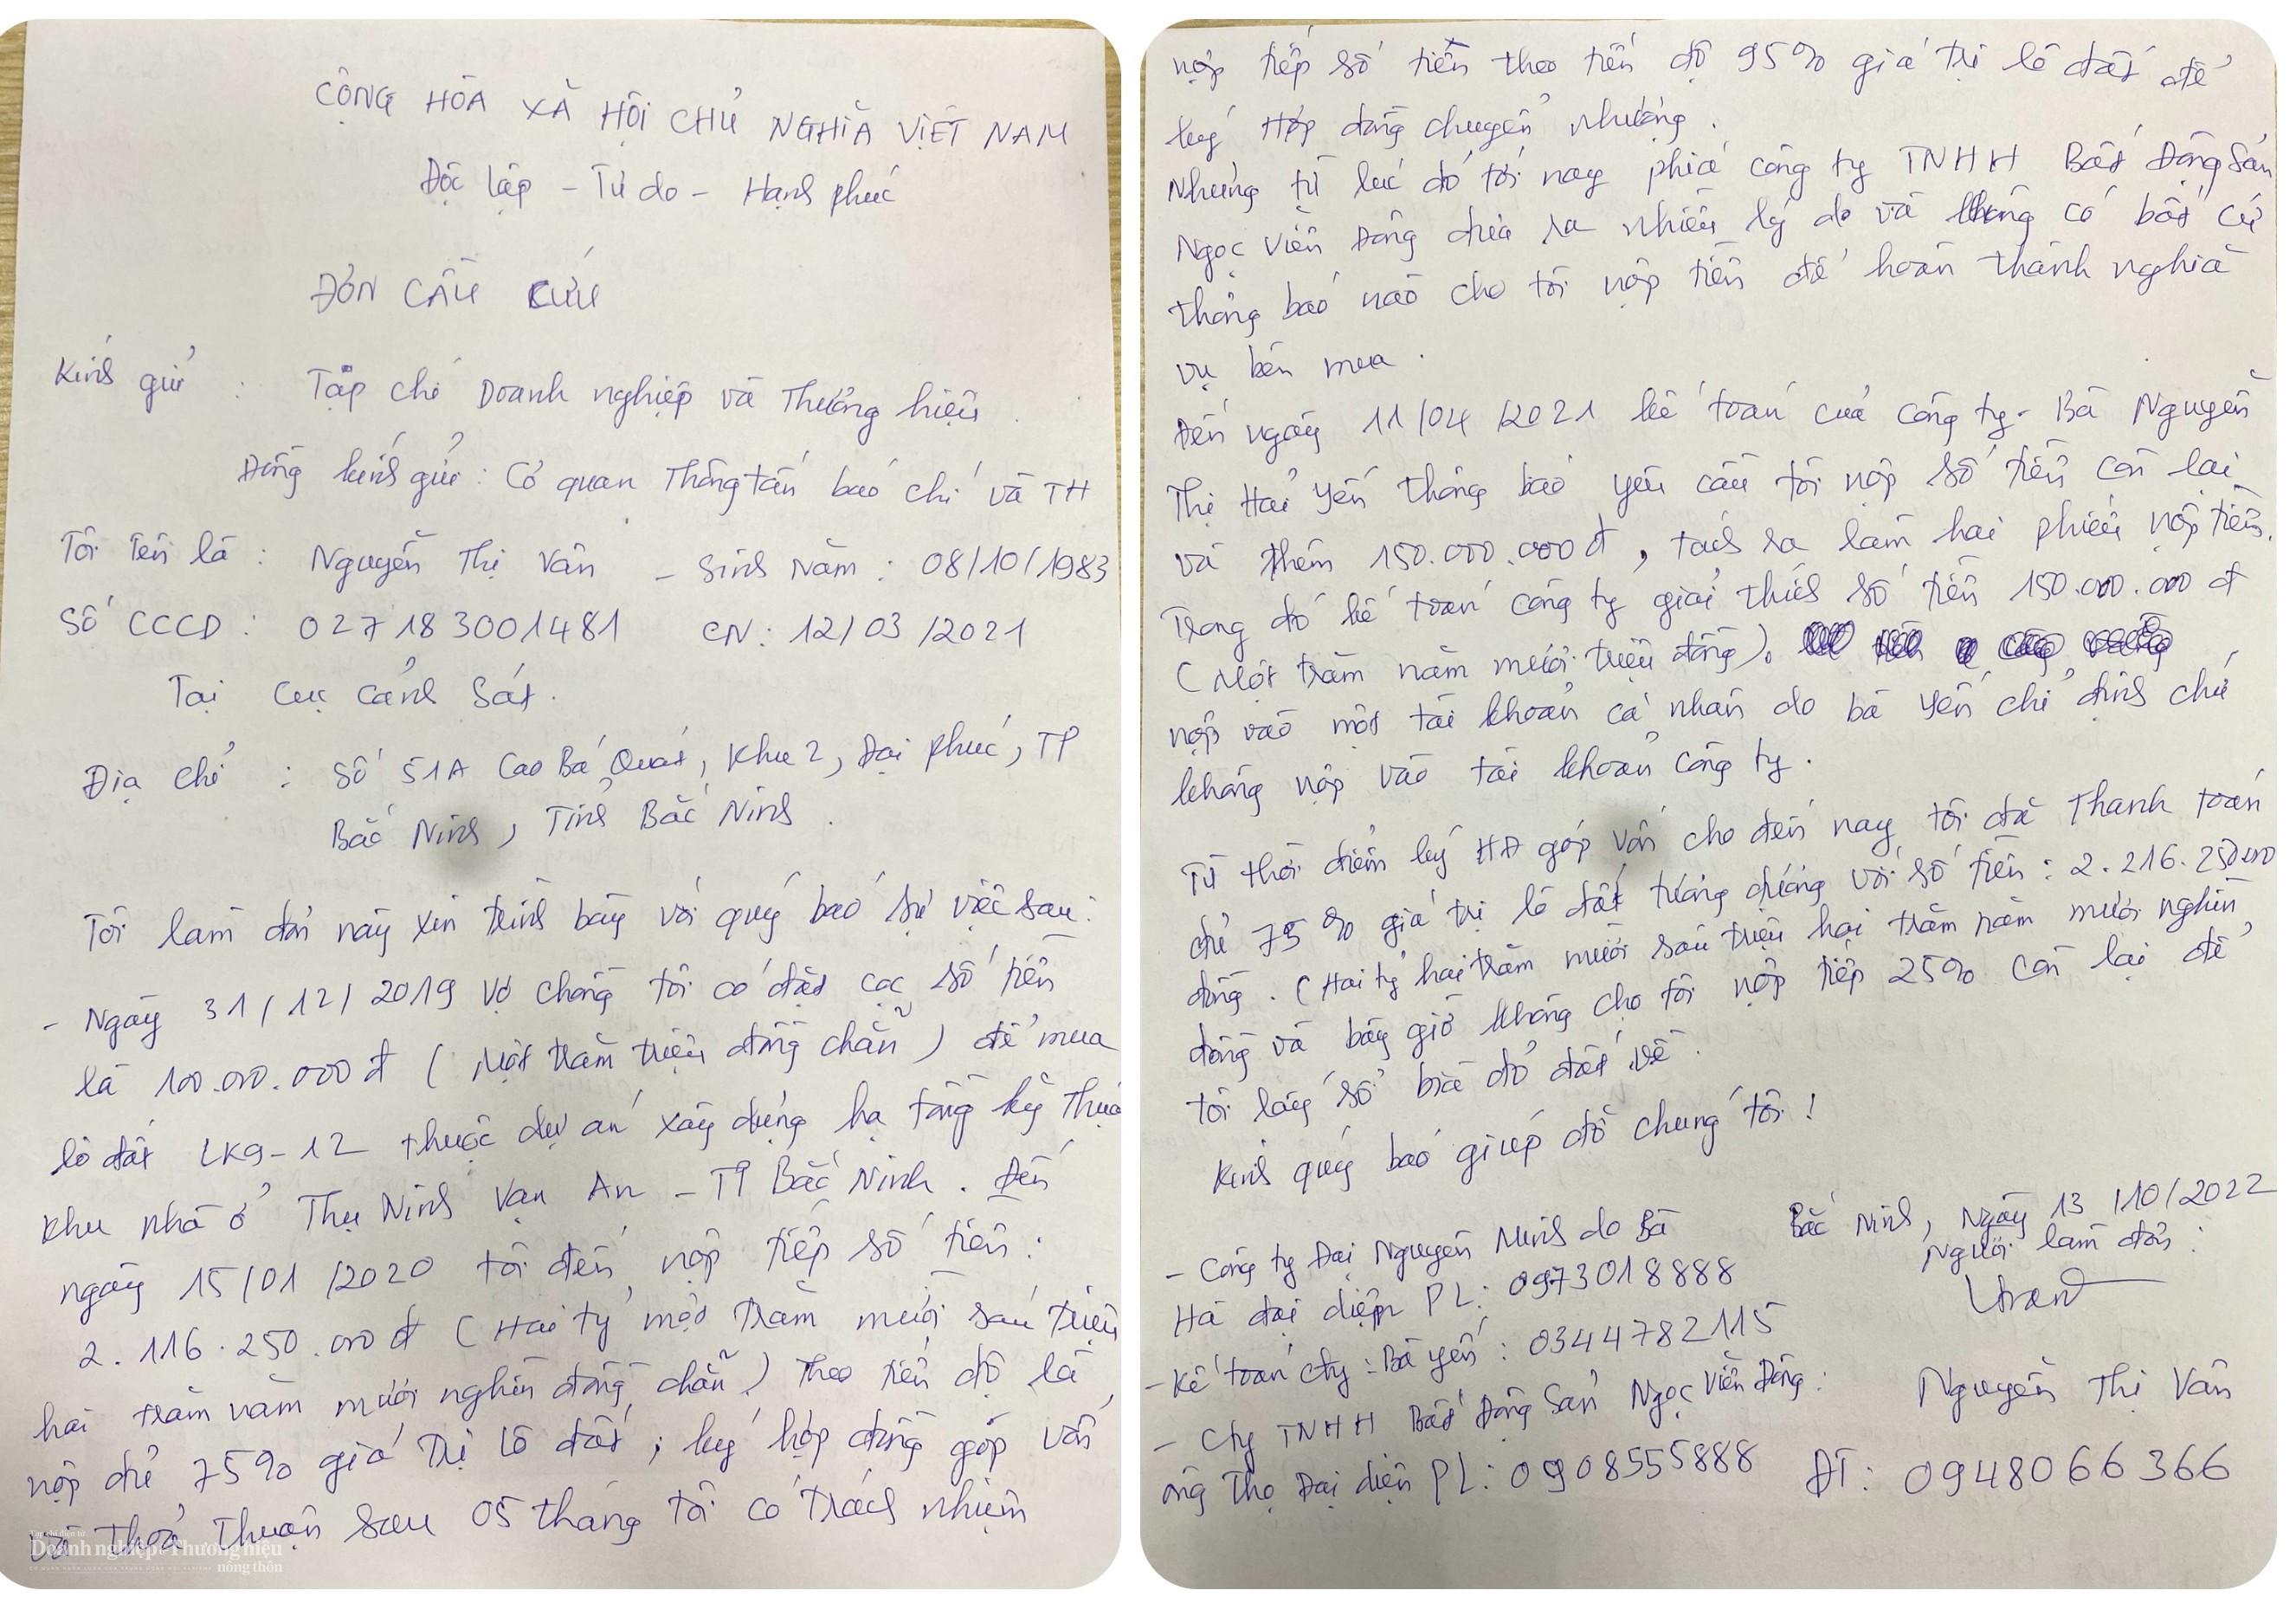 CỘNG HÒA XÃ HỘI CHỦ NGHĨA VIỆT NAM
Độc lập - Tự do - Hạnh phúc
ĐƠN CẦU CỨU
Kính gửi : Tạp chí Doanh nghiệp và Thương hiệu.
Đồng kính gửi : Cơ quan Thông tấn báo chí và TH
Tôi tên là : Nguyễn Thị Vân - Sinh năm : 08/10/1983
Số CCCD : 027183001481 CN: 12/03/2021
Tại cục cảnh sát.
Địa chỉ : Số 51A Cao Bá Quát, Khu 2, Đại phúc, TP
Bắc Ninh, Tỉnh Bắc Ninh.
Tôi làm đơn này xin trình bày với quý báo sự việc sau:
- Ngày 31/12/2019 vợ chồng tôi có đặt cọc số tiền
là 100.000.000đ (Một trăm triệu đồng chẵn) để mua
lô đất LK9-12 thuộc dự án xây dựng hạ tầng kỹ thuậ
khu nhà ở Thụ Ninh Vạn An - TP Bắc Ninh. Đến
ngày 15/01/2020 tôi đến nộp tiếp số tiền:
2.116.250.000đ (Hai tỷ một trăm mười sáu triệu
hai trăm năm mươi nghìn đồng chẵn) theo tiến độ là
nộp đủ 75% giá trị lô đất, ký hợp đồng góp vốn
và thoả thuận sau 05 tháng tôi có trách nhiệm
Tạp chí điện tử
Doanh nghiệp & Thương hiệu
nông thôn
nộp tiếp số tiền theo tiến độ 95% giá trị lô đất để
ký Hợp đồng chuyển nhượng.
Nhưng từ lúc đó tới nay phía công ty TNHH Bất Động Sản
Ngọc Viễn Đông đưa ra nhiều lý do và không có bất cứ
thông báo nào cho tôi nộp tiền để hoàn thành nghĩa
vụ bên mua.
Đến ngày 11/04/2021 kế toán của công ty - Bà Nguyễn
Thị Hải Yến thông báo yêu cầu tôi nộp số tiền còn lại
và thêm 150.000.000đ, tách ra làm hai phiếu nộp tiền.
Trong đó kế toán công ty giải thích số tiền 150.000.000đ
(Một trăm năm mươi triệu đồng).
nộp vào một tài khoản cá nhân do bà Yến chỉ định chứ
không nộp vào tài khoản công ty.
Từ thời điểm ký HĐ góp vốn cho đến nay tôi đã thanh toán
đủ 75% giá trị lô đất tương đương với số tiền : 2.216.250.000
đồng. (Hai tỷ hai trăm mười sáu triệu hai trăm năm mươi nghìn
đồng và bây giờ không cho tôi nộp tiếp 25% còn lại để
tôi lấy sổ bìa đỏ đất về.
Kính quý báo giúp đỡ chúng tôi!
Bắc Ninh, Ngày 13/10/2022
Người làm đơn:
- Công ty Đại Nguyên Minh do Bà
Hà đại diện PL: 0973018888
- Kế toán cty : Bà Yến : 0344782115
- Cty TNHH Bất Động Sản Ngọc Viễn Đông :
ông Thọ Đại diện PL: 0908555888
Nguyễn Thị Vân
ĐT: 0948066366